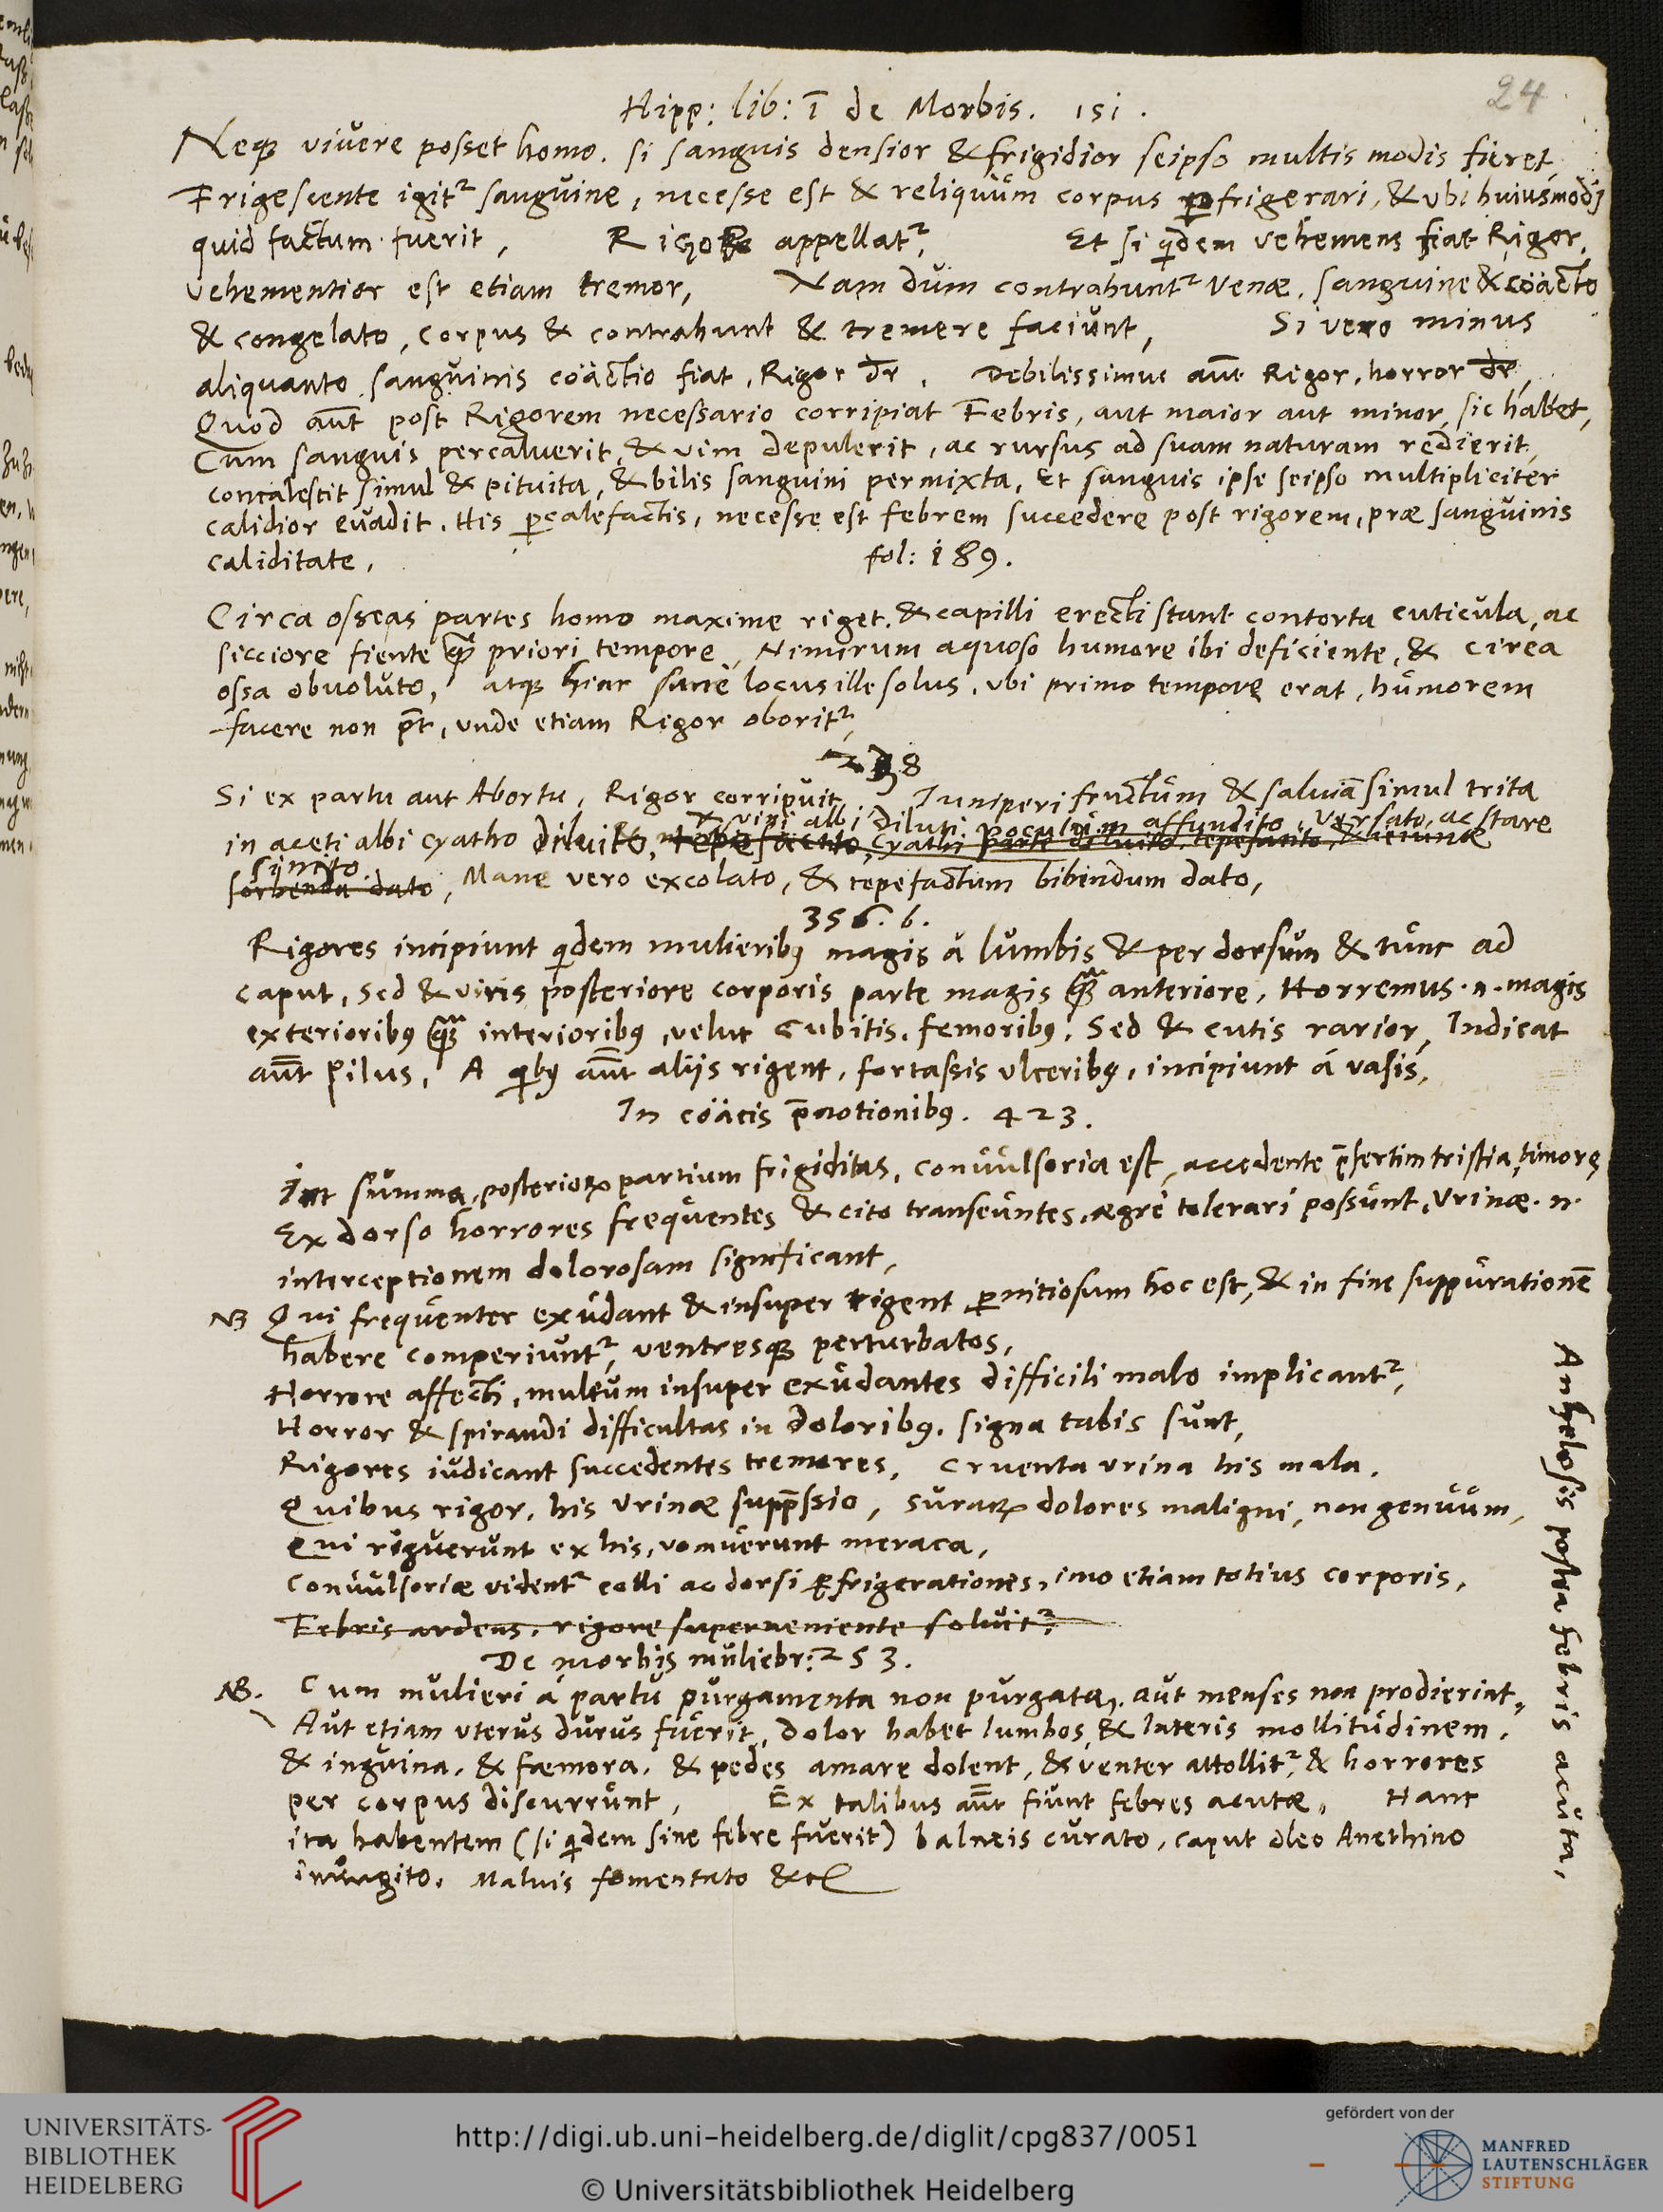 24
Hipp: lib: ī de Morbis. 151.
Neqꝫ vivere posset homo. si sanguis densior & frigidior seipso multis modis fieret,
Frigescente igitᷣ sanguine, necesse est & reliquum corpus ꝑfrigerari, & ubi huiusmodj
quid factum fuerit, Rigor appellatᷣ, Et si qͥdem vehemens fiat Rigor,
vehementior est etiam tremor, Nam dum contrahuntᷣ venæ, sanguine & cöacto
& congelato, corpus & contrahunt & tremere faciunt, Si vero minus
aliquanto sanguinis cöactio fiat, Rigor dr̄. Debilissimus aūt Rigor, horror dr̄,
Quod aūt post Rigorem necessario corripiat Febris, aut maior aut minor, sic habet,
Cum sanguis percaluerit, & vim depulerit, ac rursus ad suam naturam redierit,
concalescit simul & pituita, & bilis sanguini permixta, et sanguis ipse seipso multipliciter
calidior evadit. His ꝑcalefactis, necesse est febrem succedere post rigorem, præ sanguinis
caliditate, fol: 189.
Circa osseas partes homo maxime riget. & capilli erecti stant contorta cuticula, ac
sicciore fiente qꝫ̃ priori tempore, Nimirum aquoso humore ibi deficiente, & circa
ossa obvoluto, atqꝫ hinc sane locus ille solus, ubi primo tempore erat, humorem
facere non pt̄, unde etiam Rigor oboritᷣ,
Si ex partu aut Abortu, Rigor corripuit, Juniperi fructum & salviā simul trita
vini albi diluti poculum affundito, versato, ac stare
in aceti albi cyatho diluito, tepefacito, cyathi parte diluito, tepefacito, & ieiunæ
sinito
sorbenda dato, Mane vero excolato, & tepefactum bibendum dato,
356. b.
Rigores incipiunt qͥdem mulieribꝰ magis á lumbis & per dorsum & tunc ad
caput, sed & viris posteriore corporis parte magis qꝫ̃ anteriore, Horremus .n. magis
exterioribꝰ qꝫ̃ interioribꝰ, velut cubitis, femoribꝰ. Sed & cutis rarior, Indicat
aūt pilus, A qͥbꝰ aūt aliis rigent, fortassis ulceribꝰ, incipiunt á vasis,
In cöacis p̄notionibꝰ. 423.
Int summa, posterioꝝ partium frigiditas, convulsoria est, accedente p̄sertim tristia, timore
Ex dorso horrores frequentes & cito transeuntes, ægre tolerari possunt, Urinæ .n.
interceptionem dolorosam significant,
NB Qui frequenter exudant & insuper rigent, ꝑnitiosum hoc est, & in fine suppurationē
habere comperiuntᷣ, ventresqꝫ perturbatos,
Horrore affecti, multum insuper exudantes difficili malo implicantᷣ,
Horror & spirandi difficultas in doloribꝰ, signa tabis sunt,
Rigores iudicant succedentes tremores, Cruenta urina his mala.
Quibus rigor, his urinæ supp̄ssio, suraꝝ dolores maligni, non genuum,
Qui riguerunt ex his, vomuerunt meraca,
Convulsoriæ videntᷣ colli ac dorsi ꝑfrigerationes, imo etiam totius corporis,
Febris ardens, rigore superveniente solvitᷣ,
De morbis muliebr: 253.
NB. Cum mulieri á partu purgamenta non purgata, aut menses non prodierint,
Aut etiam uterus durus fuerit, dolor habet lumbos, & lateris mollitudinem,
& inguina, & fæmora, & pedes amare dolent, & venter attollitᷣ, & horrores
per corpus discurrunt, Ex talibus aūt fiunt febres acutæ, Hanc
ita habentem (si qͥdem sine febre fuerit) balneis curato, caput oleo Anethino
inungito, Malvis fomentato &c
Anhelosis postea febris acuta,
UNIVERSITÄTS-
BIBLIOTHEK
HEIDELBERG
http://digi.ub.uni-heidelberg.de/diglit/cpg837/0051
© Universitätsbibliothek Heidelberg
gefördert von der
MANFRED
LAUTENSCHLÄGER
STIFTUNG